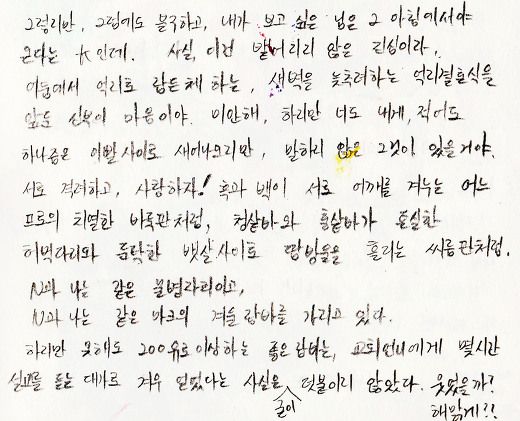 그렇지만, 그럼에도 불구하고, 내가 보고 싶은 넌 그 아침에서야
큰다는 인데. 사실, 이건 밝혀지지 않은 진심이라,
이불에서 억지로 잠든체 하는, 새벽을 늦추려하는 억지결혼식을
앞둔 신부의 마음이야. 미안해, 하지만 너도 내게, 적어도
하나쯤은 이빨사이로 새어나오지만, 말하지 않은 그것이 있을거야.
서로 격려하고, 사랑하자! 흑과 백이 서로 어깨를 겨누는 어느
프로의 치열한 바둑판처럼, 청샅바와 홍샅바가 튼실한
허벅다리와 두락한 뱃살사이로 땀방울을 흘리는 씨름판처럼.
N과 나는 같은 불변라지이고,
N과 나는 같은 마크의 겨울잠바를 가지고 있다.
하지만 못해도 200유로이상하는 좋은잠바는, 언니에게 몇시간
설교를 듣는 대가로 겨우 얻었다는 사실은 굳이 덧붙이지 않았다. 웃었을까?
해맑게??